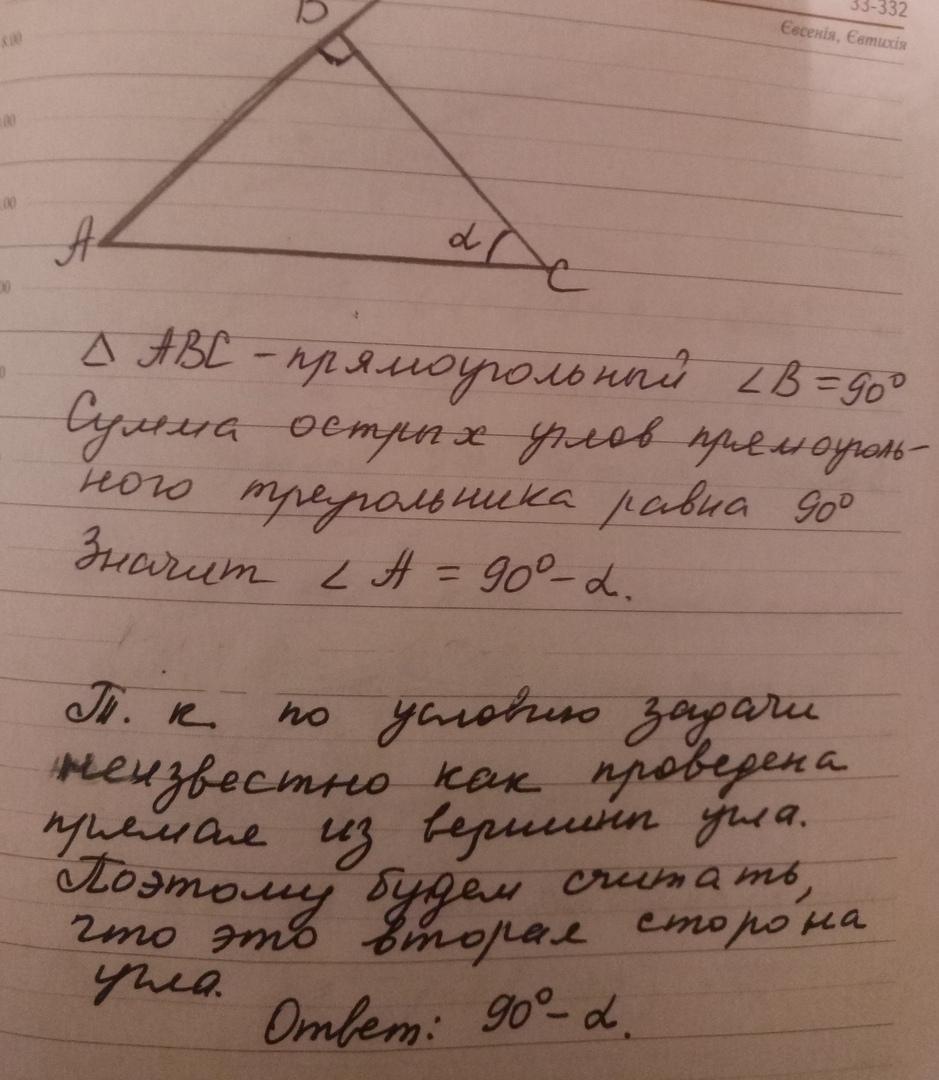 33-332
Євсенія, Євтихія
8.00
.00
.00
00
0
B
A
α
C
△ ABC - прямоугольный ∠B = 90°
Сумма острых углов прямоуголь-
ного треугольника равна 90°
Значит ∠ A = 90° - α.
Т. к. по условию задачи
неизвестно как проведена
прямая из вершины угла.
Поэтому будем считать,
что это вторая сторона
угла.
Ответ: 90° - α.